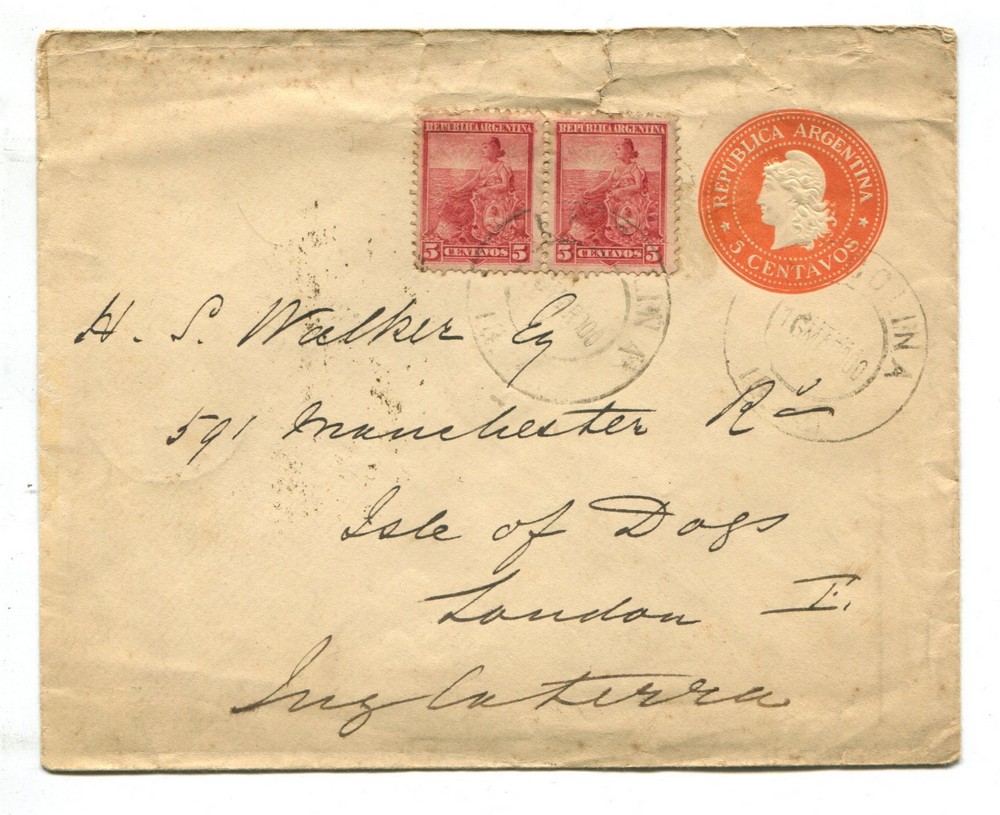 REPUBLICA ARGENTINA
5 CENTAVOS 5
REPUBLICA ARGENTINA
5 CENTAVOS 5
REPÚBLICA ARGENTINA
5 CENTAVOS
H. S. Walker Eq
591 Manchester Rd
Isle of Dogs
London E.
Inglaterra